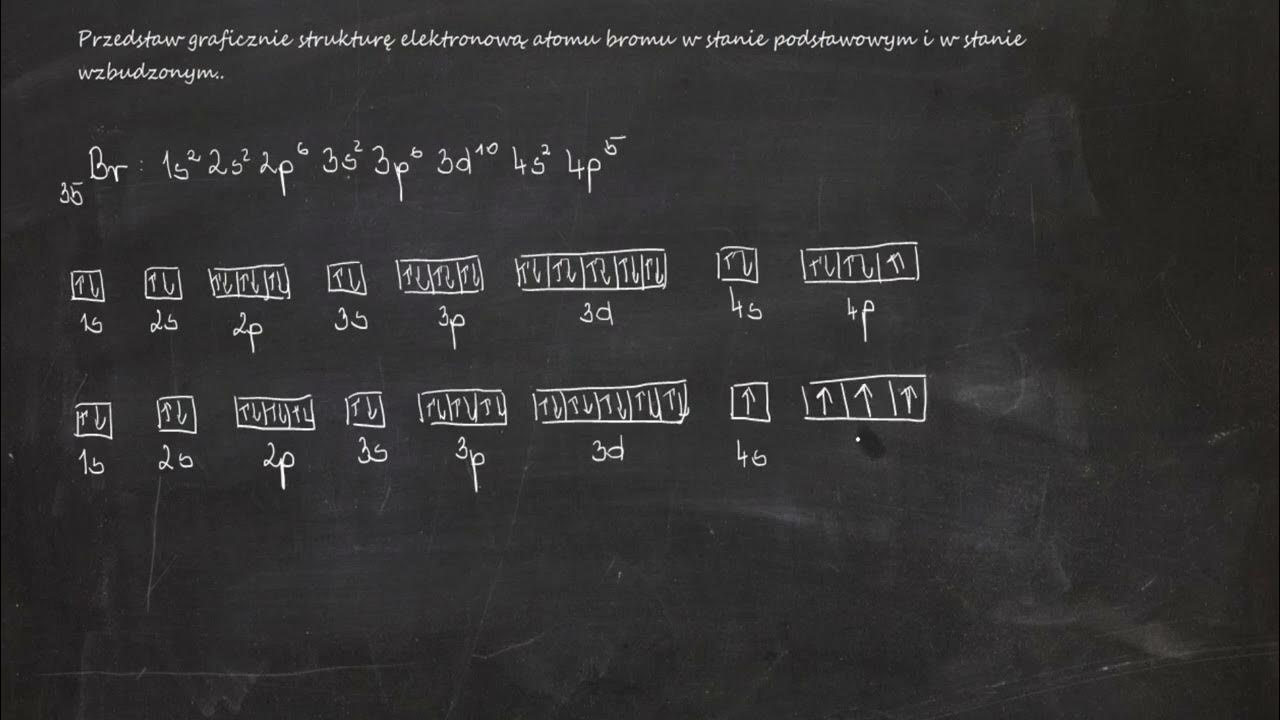 Przedstaw graficznie strukturę elektronową atomu bromu w stanie podstawowym i w stanie
wzbudzonym..
₃₅Br : 1s² 2s² 2p⁶ 3s² 3p⁶ 3d¹⁰ 4s² 4p⁵
↑↓ ↑↓ ↑↓|↑↓|↑↓ ↑↓ ↑↓|↑↓|↑↓ ↑↓|↑↓|↑↓|↑↓|↑↓ ↑↓ ↑↓|↑↓|↑
1s 2s 2p 3s 3p 3d 4s 4p
↑↓ ↑↓ ↑↓|↑↓|↑↓ ↑↓ ↑↓|↑↓|↑↓ ↑↓|↑↓|↑↓|↑↓|↑↓ ↑ ↑|↑|↑
1s 2s 2p 3s 3p 3d 4s